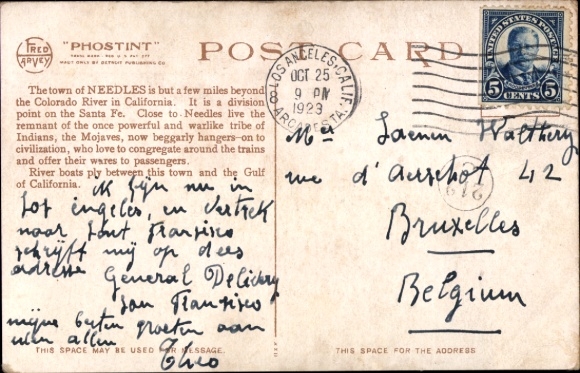 FRED
HARVEY
"PHOSTINT"
TRADE MARK REG. U.S. PAT. OFF.
MADE ONLY BY DETROIT PUBLISHING CO.
POST CARD
The town of NEEDLES is but a few miles beyond
the Colorado River in California. It is a division
point on the Santa Fe. Close to Needles live the
remnant of the once powerful and warlike tribe of
Indians, the Mojaves, now beggarly hangers-on to
civilization, who love to congregate around the trains
and offer their wares to passengers.
River boats ply between this town and the Gulf
of California.
ik zijn nu in
Los Engeles, en vertrek
naar Sant Fransisco
schrijft mij op dees
adresse General Delivery
San Fransisco
mijne besten groeten aan
ulen allen
Theo
THIS SPACE MAY BE USED FOR MESSAGE.
LOS ANGELES, CALIF.
OCT 25
9 PM
1923
8 ARCADE STA.
UNITED STATES POSTAGE
5 CENTS 5
Mer Walthery
rue d'Aerschot 42
Bruxelles
Belgium
THIS SPACE FOR THE ADDRESS.